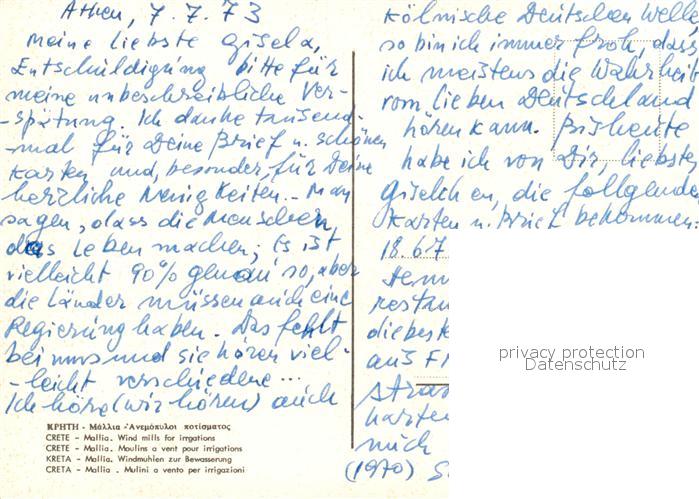 Athen, 7.7.73
meine liebste Gisela,
Entschuldigung bitte für
meine unbeschreibliche Ver-
-spätung. Ich danke tausend-
-mal für Deine Brief u. schönen
Karten und, besonder, für Deine
herzliche Neuigkeiten. - Man
sagen, dass die Menschen,
das Leben machen; Es ist
vielleicht 90% genau so, aber
die Länder müssen auch eine
Regierung haben. Das fehlt
bei uns und sie hören viel-
-leicht verschiedene...
Ich höre (wir hören) auch
ΚΡΗΤΗ - Μάλλια - Ἀνεμόμυλοι ποτίσματος
CRETE - Mallia. Wind mills for irrgations
CRETE - Mallia. Moulins a vent pour irrigations
KRETA - Mallia. Windmuhlen zur Bewasserung
CRETA - Mallia . Mulini a vento per irrigazioni
Kölnische Deutschen Welle,
so bin ich immer froh, dass
ich meistens die Wahrheit
vom lieben Deutschland
hören kann. Bis heute
habe ich von Dir, liebstes
Giselchen, die follgende
Karten u. Brief bekommen:
18.6.7
restau
die beste
aus F
Stras
karten
mich
(1970) S
privacy protection
Datenschutz